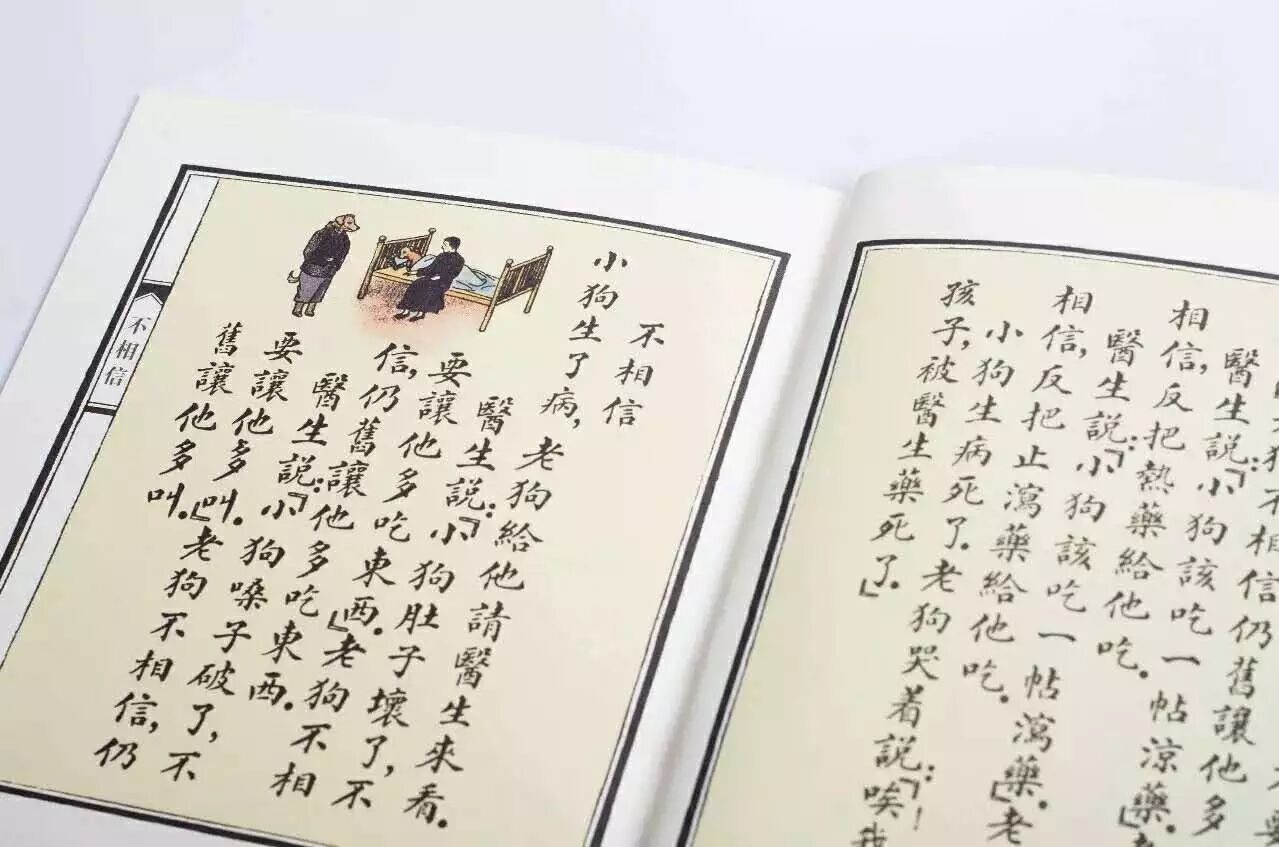 不相信
不相信
小狗生了病,老狗給他請醫生來看。
醫生說:「小狗肚子壞了,不
要讓他多吃東西。」老狗不相
信,仍舊讓他多吃東西。
醫生說:「小狗嗓子破了,不
要讓他多叫。」老狗不相信,仍
舊讓他多叫。
不相信仍舊讓他多
醫生說:「小狗該吃一帖涼藥。」老
相信,反把熱藥給他吃。
醫生說:「小狗該吃一帖瀉藥。」老
相信,反把止瀉藥給他吃。
小狗生病死了。老狗哭着說:「唉!我
孩子,被醫生藥死了。」